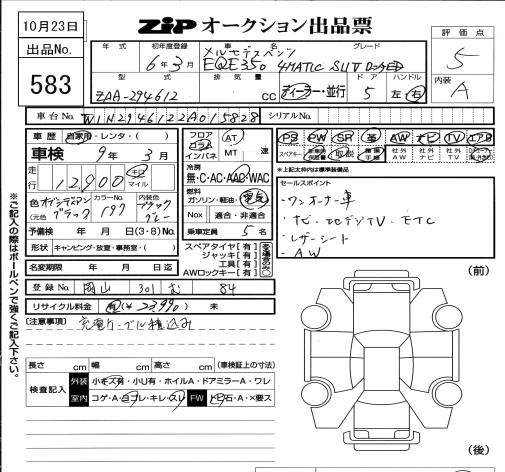 10月23日
ZIPオークション出品票
評価点
5
内装
A
出品No.
583
年式 初年度登録 車名 グレード
6年3月 メルセデスベンツ EQE350 4MATIC SUV
型式 排気量 ドア ハンドル
ZAA-294612 cc ディーラー・並行 5 左・右
車台No. W1N2946122A015828 シリアルNo.
車歴 自家用・レンタ・( )
車検 9年3月
走行 12,900 キロ マイル
色 オブシディアンブラック カラーNo. 197 内装色 ブラック グレー
(元色
予備検 年 月 日(3・8)No.
形状 キャンピング・放置・事務室・( )
名変期限 年 月 日迄
フロア コラム インパネ AT MT 速
冷房
無・C・AC・AAC・WAC
燃料
ガソリン・軽油・電気
Nox 適合・非適合
乗車定員 5名
スペアタイヤ[有]
ジャッキ[有]
工具[有]
AWロックキー[有]
PS PW SR 革 AW ナビ TV エアB
スペアキー 新車時保証書 取説 整備手帳 社外AW 社外ナビ 社外TV
*上記太枠内は標準装備品
セールスポイント
・ワンオーナー車
・ナビ・フルセグTV・ETC
・レザーシート
・AW
登録No. 岡山 301 む 84
リサイクル料金 有(¥23,990) 未
(注意事項) 充電ケーブル積込み
長さ cm 幅 cm 高さ cm (車検証上の寸法)
検査記入 外装 小キズ有・小U有・ホイルA・ドアミラーA・ワレ
室内 コゲ・A・ヨゴレ・キレ・スレ FW トビ石・A・×要ス
※ご記入の際はボールペンで強くご記入下さい。
(前)
(後)